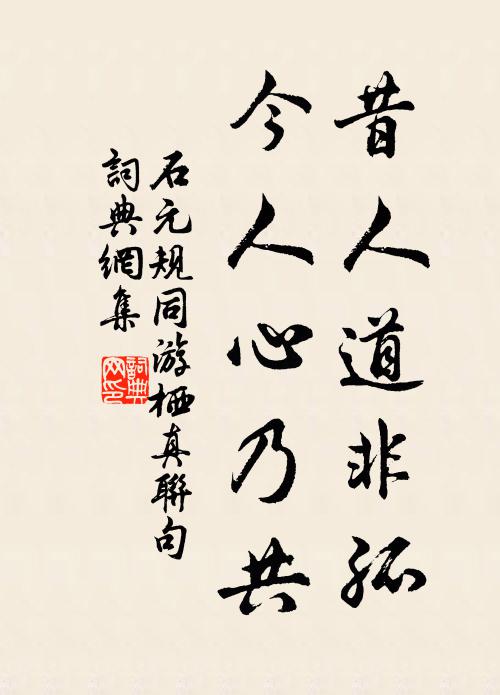 昔人道非孤
今人心乃共
石元規同游栖真聯句
詞典網集
詞典
网印